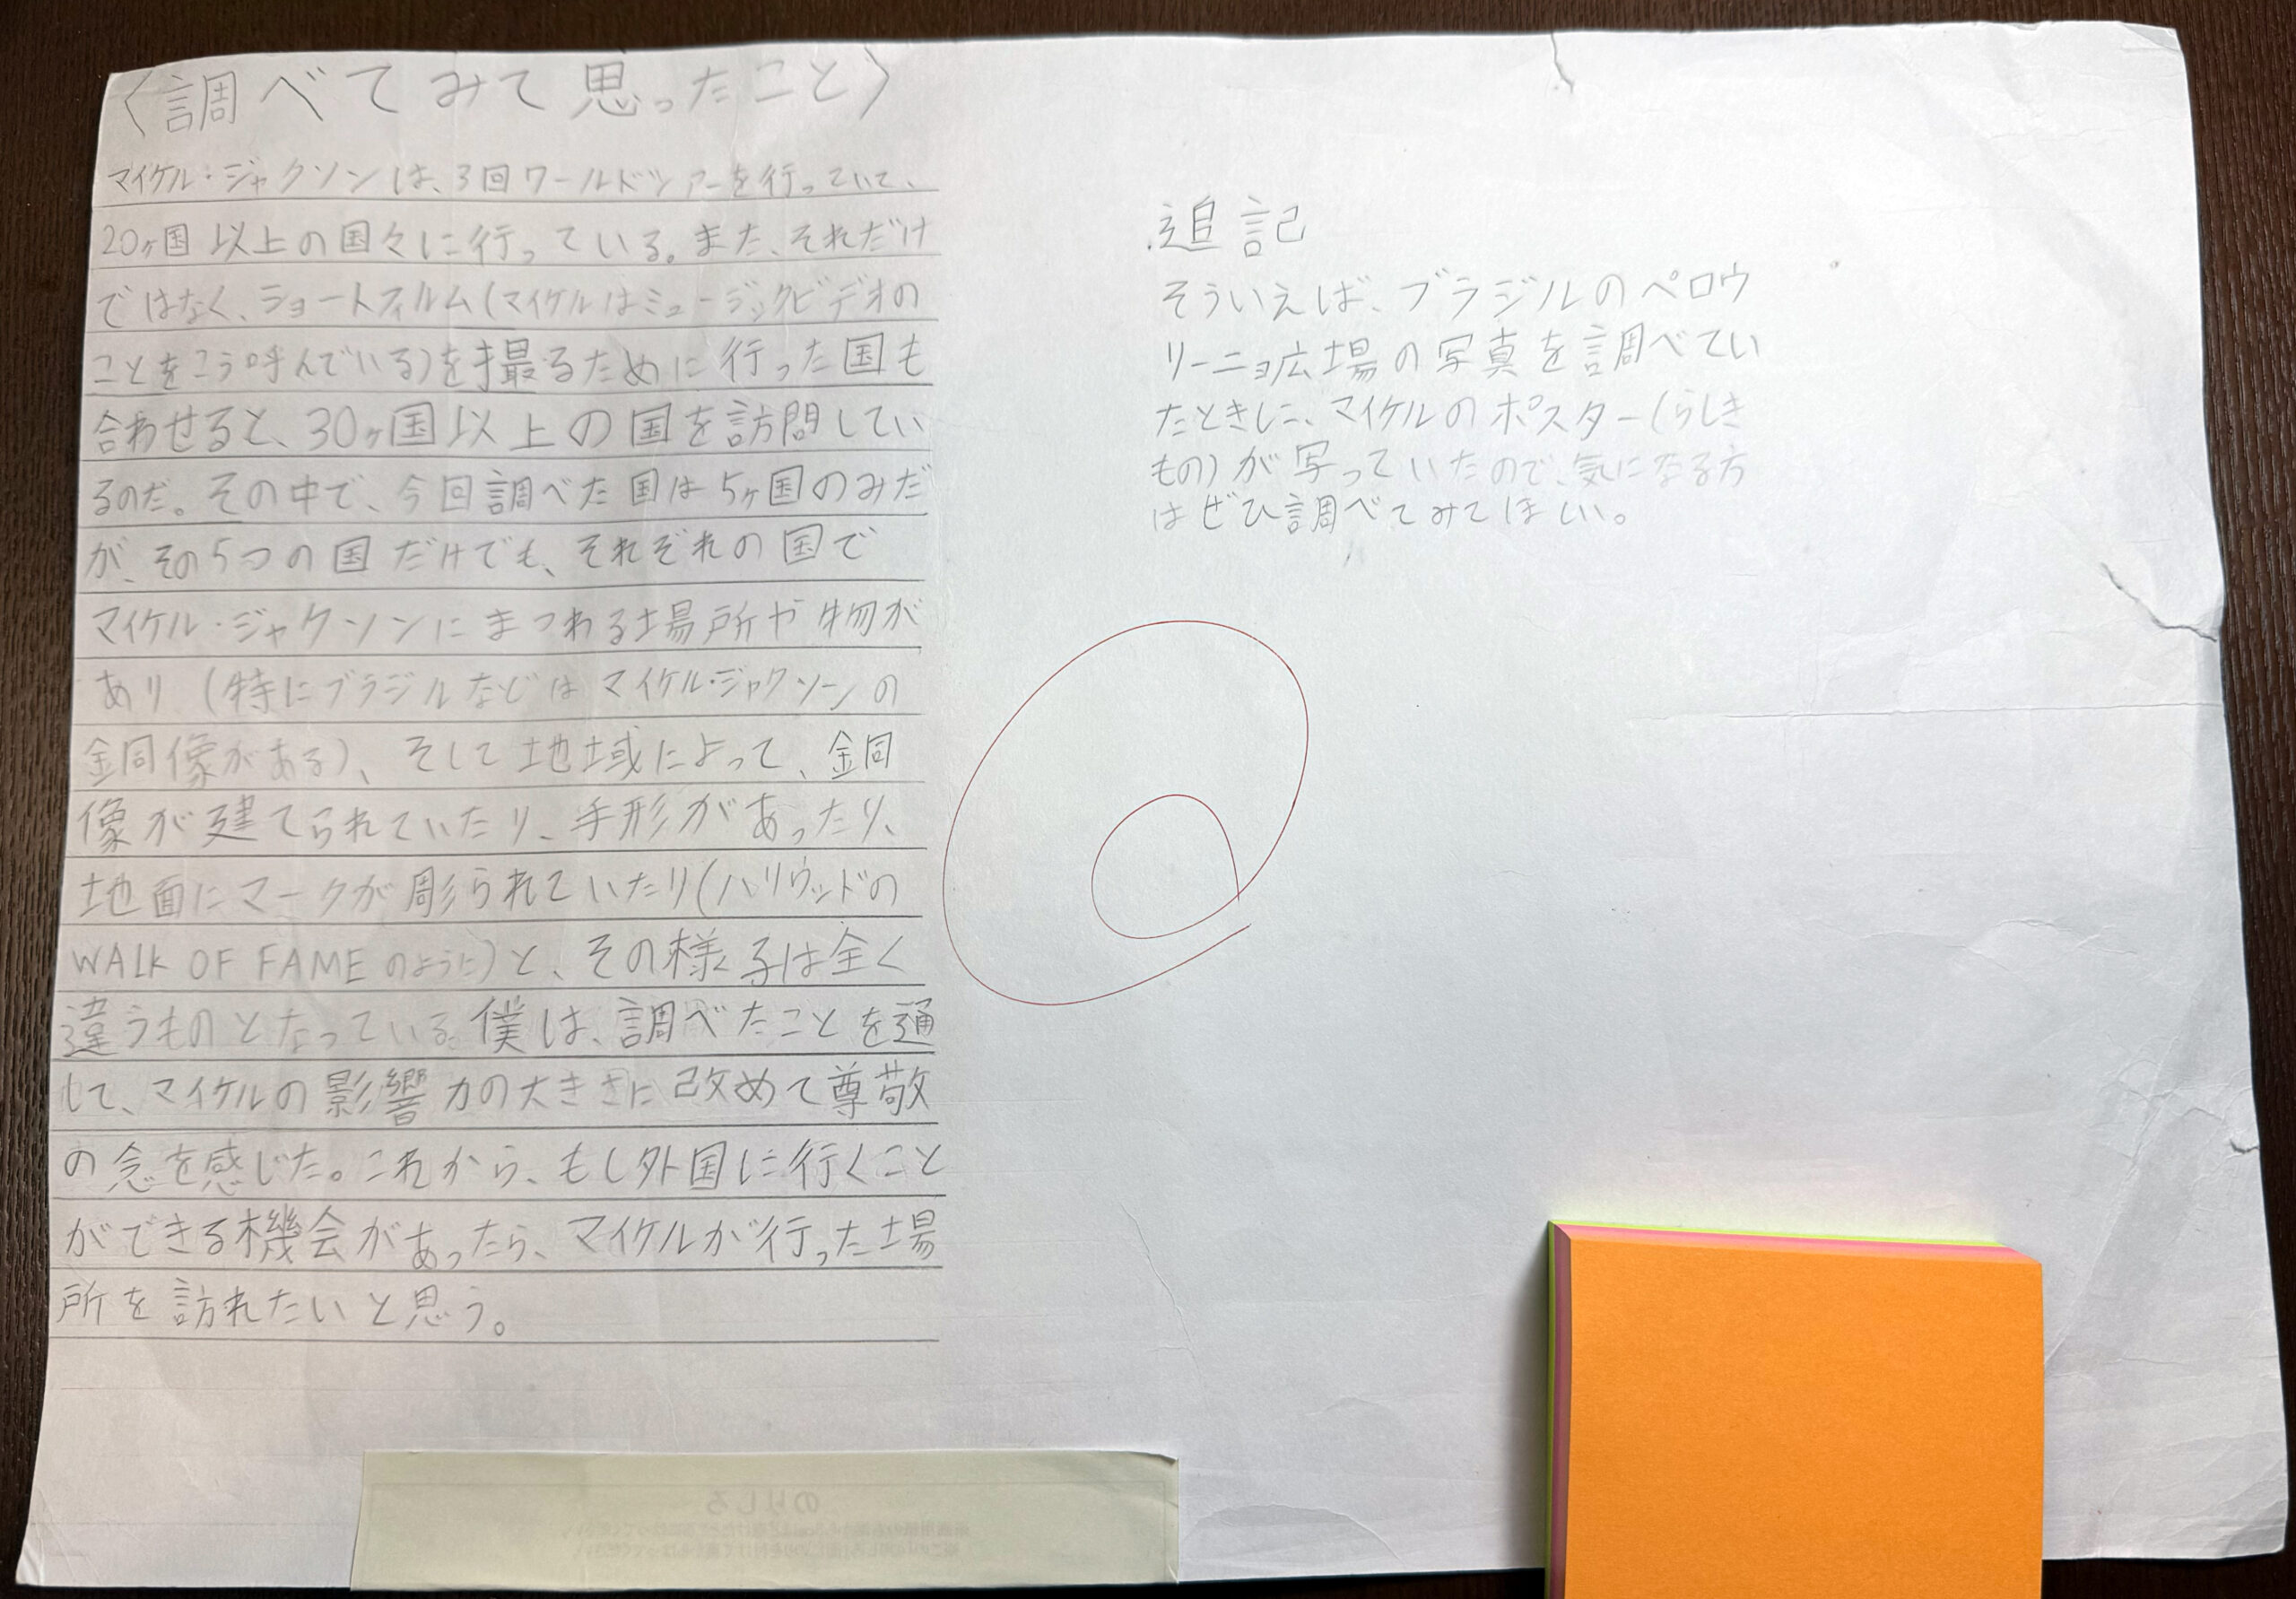 〈調べてみて思ったこと〉
マイケル・ジャクソンは、3回ワールドツアーを行っていて、
20ヶ国以上の国々に行っている。また、それだけ
ではなく、ショートフィルム(マイケルはミュージックビデオの
ことをこう呼んでいる)を撮るために行った国も
合わせると、30ヶ国以上の国を訪問してい
るのだ。その中で、今回調べた国は5ヶ国のみだ
が、その5つの国だけでも、それぞれの国で
マイケル・ジャクソンにまつわる場所や物が
あり(特にブラジルなどはマイケル・ジャクソーンの
銅像がある)、そして地域によって、銅
像が建てられていたり、手形があったり、
地面にマークが彫られていたり(ハリウッドの
WALK OF FAMEのように)と、その様子は全く
違うものとなっている。僕は、調べたことを通
して、マイケルの影響力の大きさに改めて尊敬
の念を感じた。これから、もし外国に行くこと
ができる機会があったら、マイケルが行った場
所を訪れたいと思う。
追記
そういえば、ブラジルのペロウ
リーニョ広場の写真を調べてい
たときに、マイケルのポスター(らしき
もの)が写っていたので、気になる方
はぜひ調べてみてほしい。
のりしろ